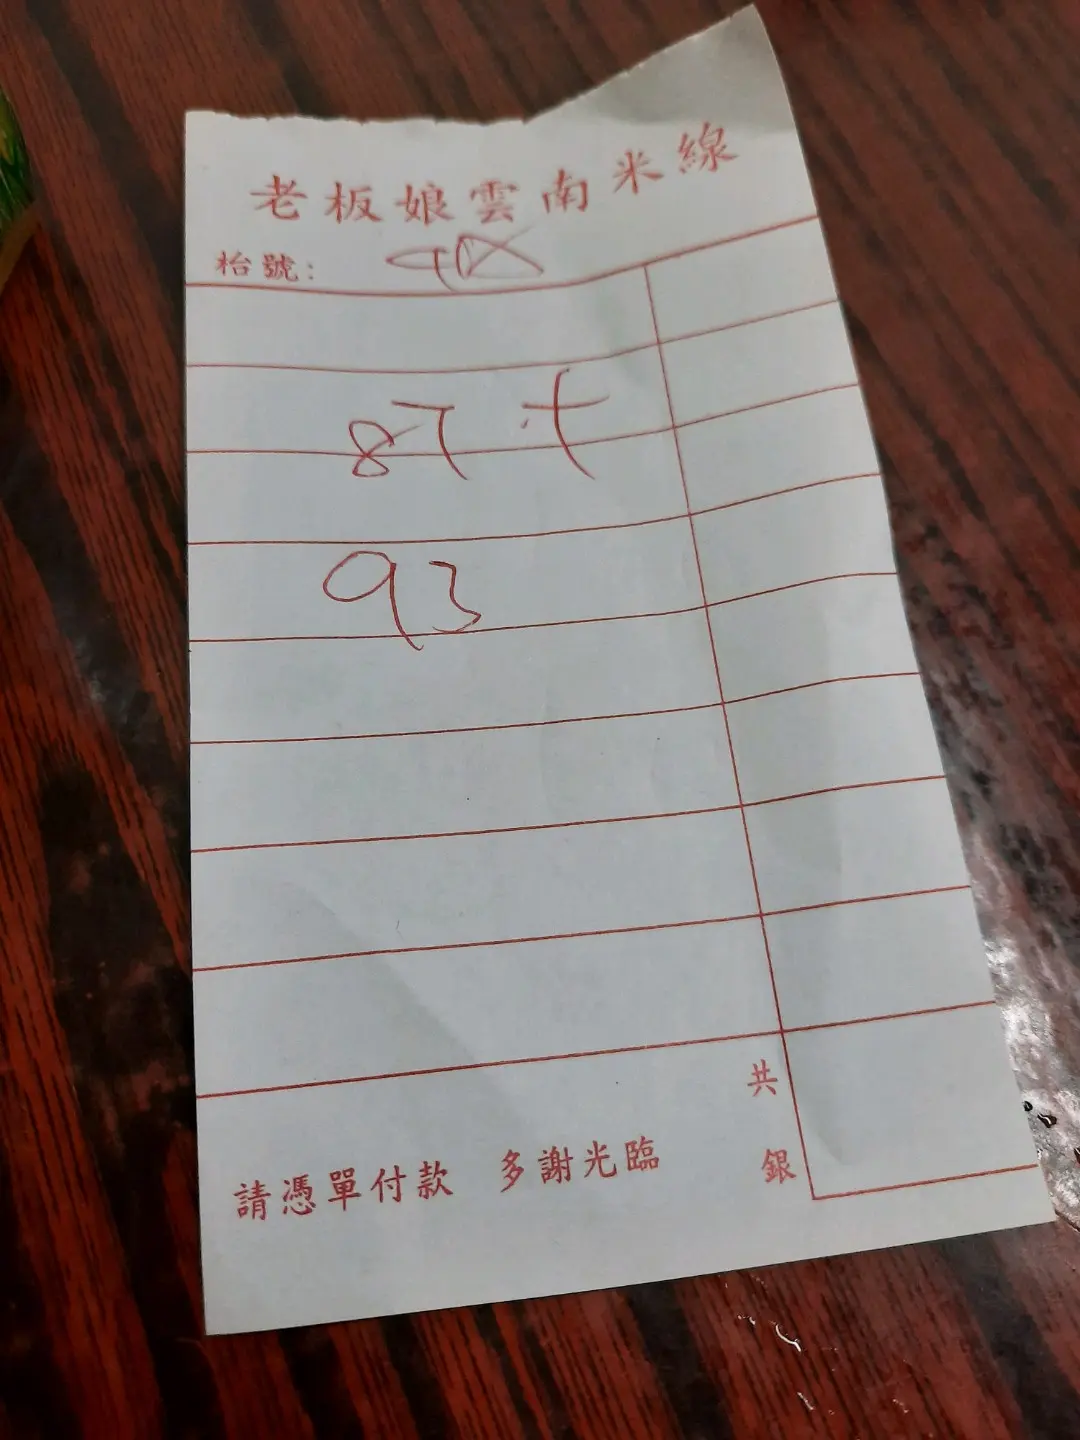 老板娘雲南米線
枱號:
87 十
93
共
銀
請憑單付款 多謝光臨